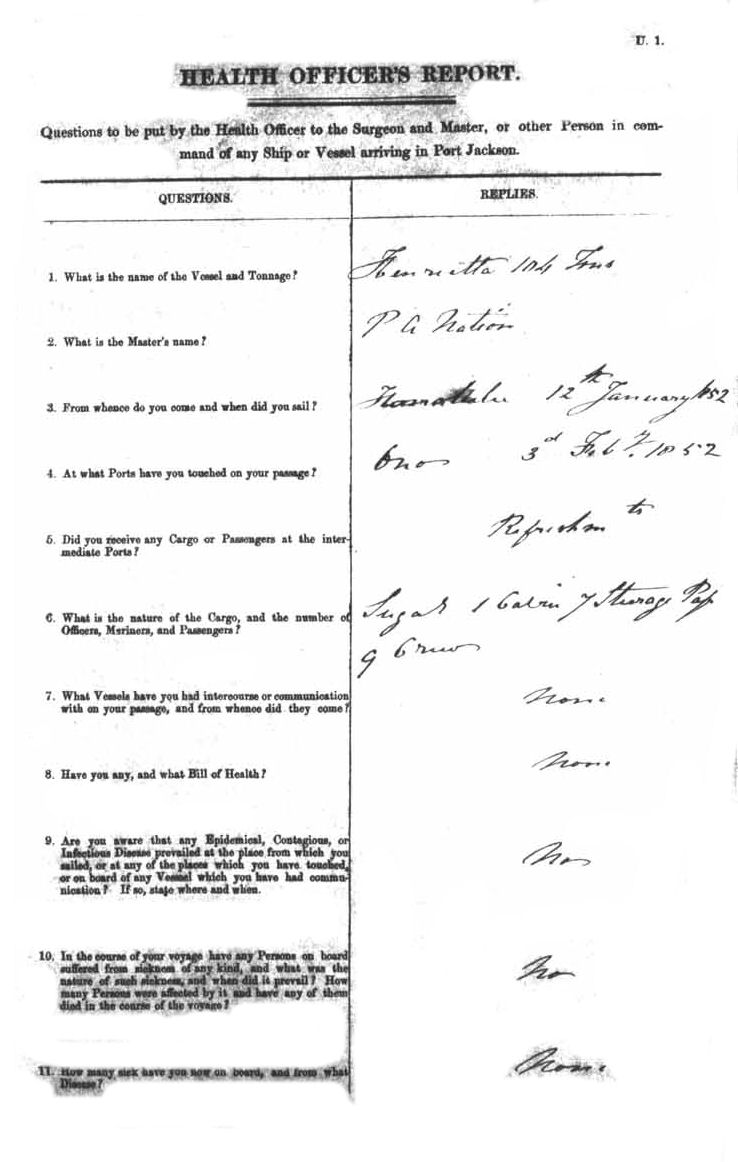 U. 1.
HEALTH OFFICER'S REPORT.
Questions to be put by the Health Officer to the Surgeon and Master, or other Person in com-
mand of any Ship or Vessel arriving in Port Jackson.
QUESTIONS.
REPLIES.
1. What is the name of the Vessel and Tonnage?
Henrietta 104 Tons
2. What is the Master's name?
P A Nation
3. From whence do you come and when did you sail?
12th January 1852
4. At what Ports have you touched on your passage?
3d Feby. 1852
5. Did you receive any Cargo or Passengers at the inter-
mediate Ports?
Refreshmts
6. What is the nature of the Cargo, and the number of
Officers, Mariners, and Passengers?
Sugar 1 Cabin 7 Sturage Pass
9 Crew
7. What Vessels have you had intercourse or communication
with on your passage, and from whence did they come?
None
8. Have you any, and what Bill of Health?
None
9. Are you aware that any Epidemical, Contagious, or
Infectious Disease prevailed at the place from which you
sailed, or at any of the places which you have touched,
or on board of any Vessel which you have had commu-
nication? If so, state where and when.
No
10. In the course of your voyage have any Persons on board
suffered from sickness of any kind, and what was the
nature of such sickness, and when did it prevail? How
many Persons were affected by it and have any of them
died in the course of the voyage?
No
11. How many sick have you now on board, and from what
Disease?
None